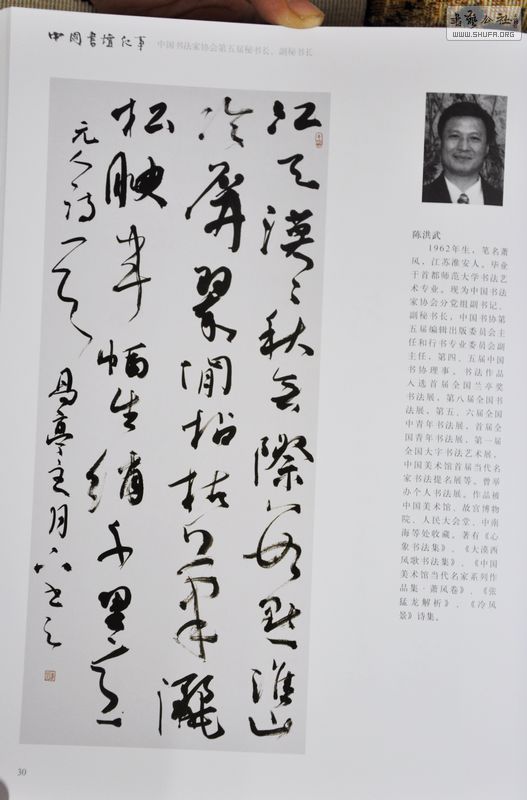 書法公社
WWW.SHUFA.ORG
中国書壇纪事
中国书法家协会第五届秘书长、副秘书长
江天漠〻秋無際數點淮山
冷屏翠閒拈枯筆灑
松腴半幅生綃千里意
元人詩一首
亭主月下书之
陈洪武
1962年生，笔名萧
风，江苏淮安人。毕业
于首都师范大学书法艺
术专业。现为中国书法
家协会分党组副书记、
副秘书长，中国书协第
五届编辑出版委员会主
任和行书专业委员会副
主任，第四、五届中国
书协理事。书法作品
入选首届全国兰亭奖
书法展，第八届全国书
法展，第五、六届全国
中青年书法展，首届全
国青年书法展，第一届
全国大字书法艺术展，
中国美术馆首届当代名
家书法提名展等。曾举
办个人书法展。作品被
中国美术馆、故宫博物
院、人民大会堂、中南
海等处收藏。著有《心
象书法集》、《大漠西
风歌书法集》、《中国
美术馆当代名家系列作
品集·萧风卷》、《张
猛龙解析》、《冷风
景》诗集。
30